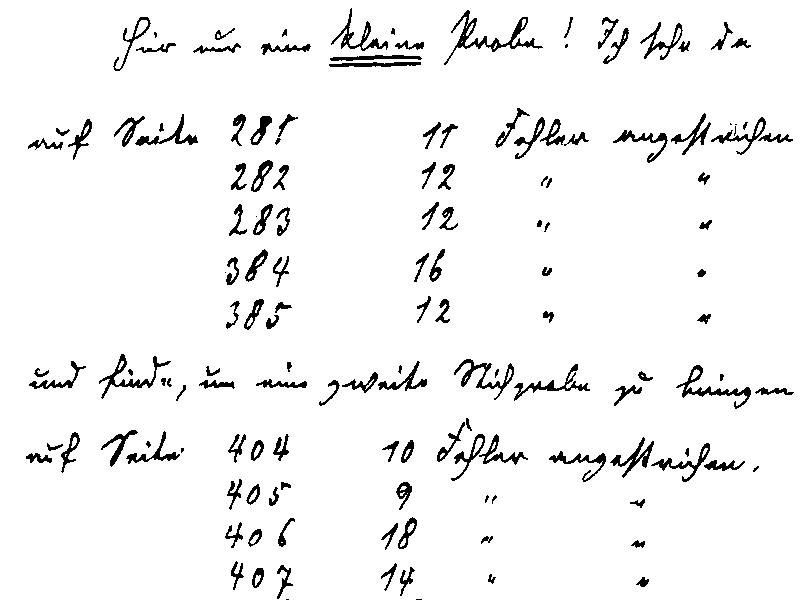 Hier nur eine kleine Probe! Ich sehe da
auf Seite 281 11 Fehler angestrichen
282 12 " "
283 12 " "
384 16 " "
385 12 " "
und finde, um eine zweite Stichprobe zu bringen
auf Seite 404 10 Fehler angestrichen.
405 9 " "
406 18 " "
407 14 " "